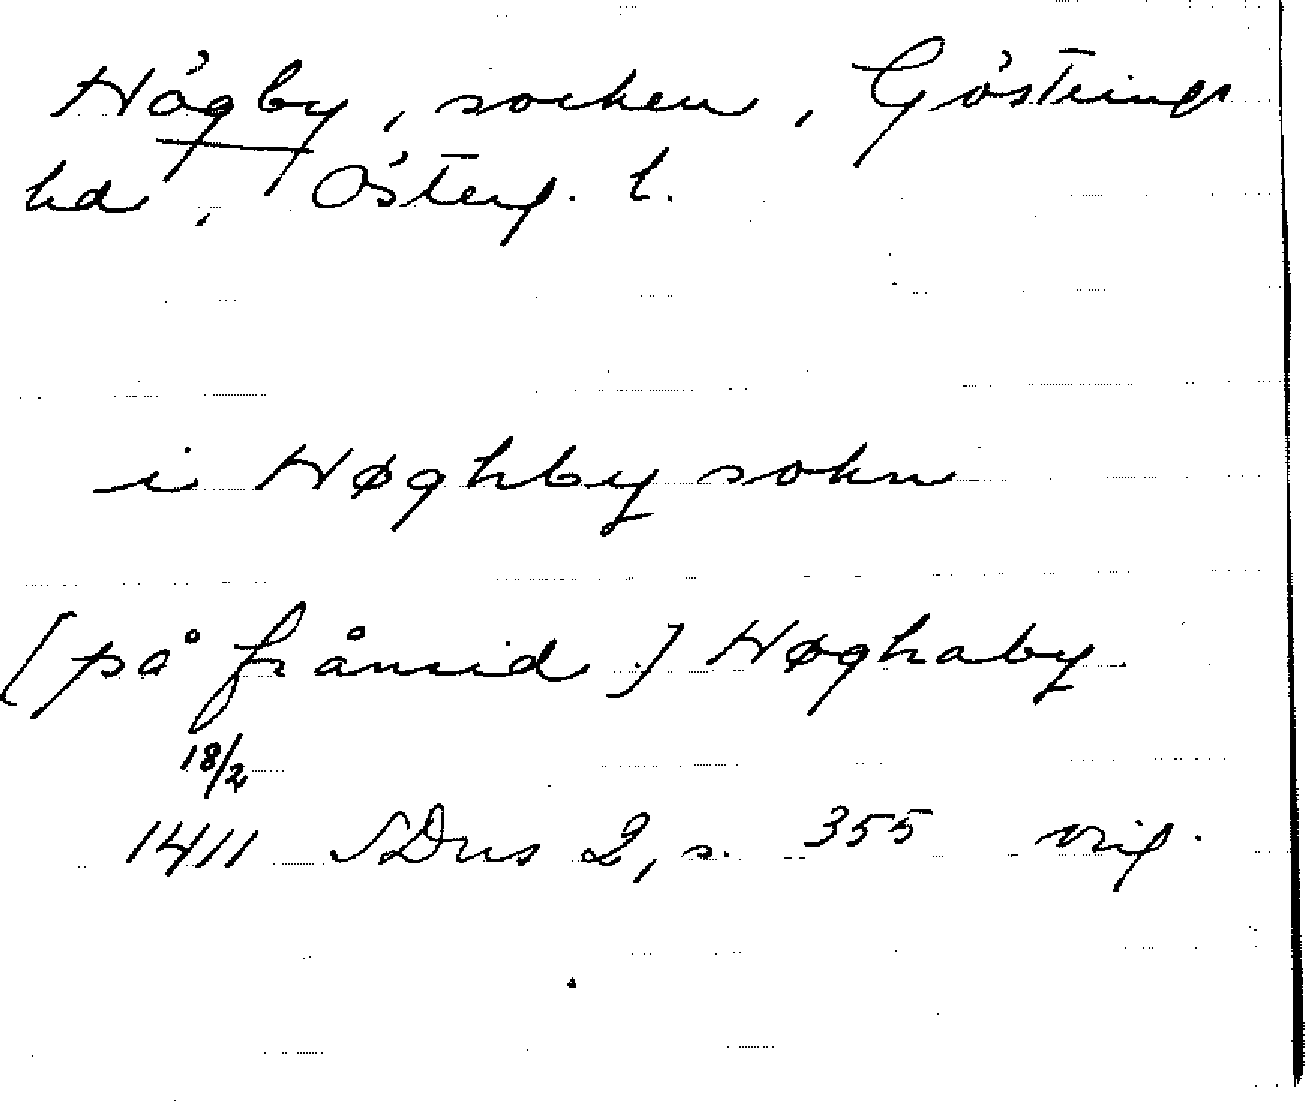 Högby, socken, Göstrings
hd, Österg. l.
i Høghby sokn
[på frånsid.] Høghaby
18/2
1411 SDns 2, s. 355 orig.